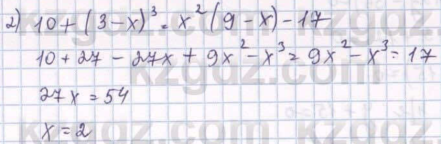 2) 10 + (3 - x)³ = x² (9 - x) - 17
10 + 27 - 27x + 9x² - x³ = 9x² - x³ - 17
27x = 54
x = 2